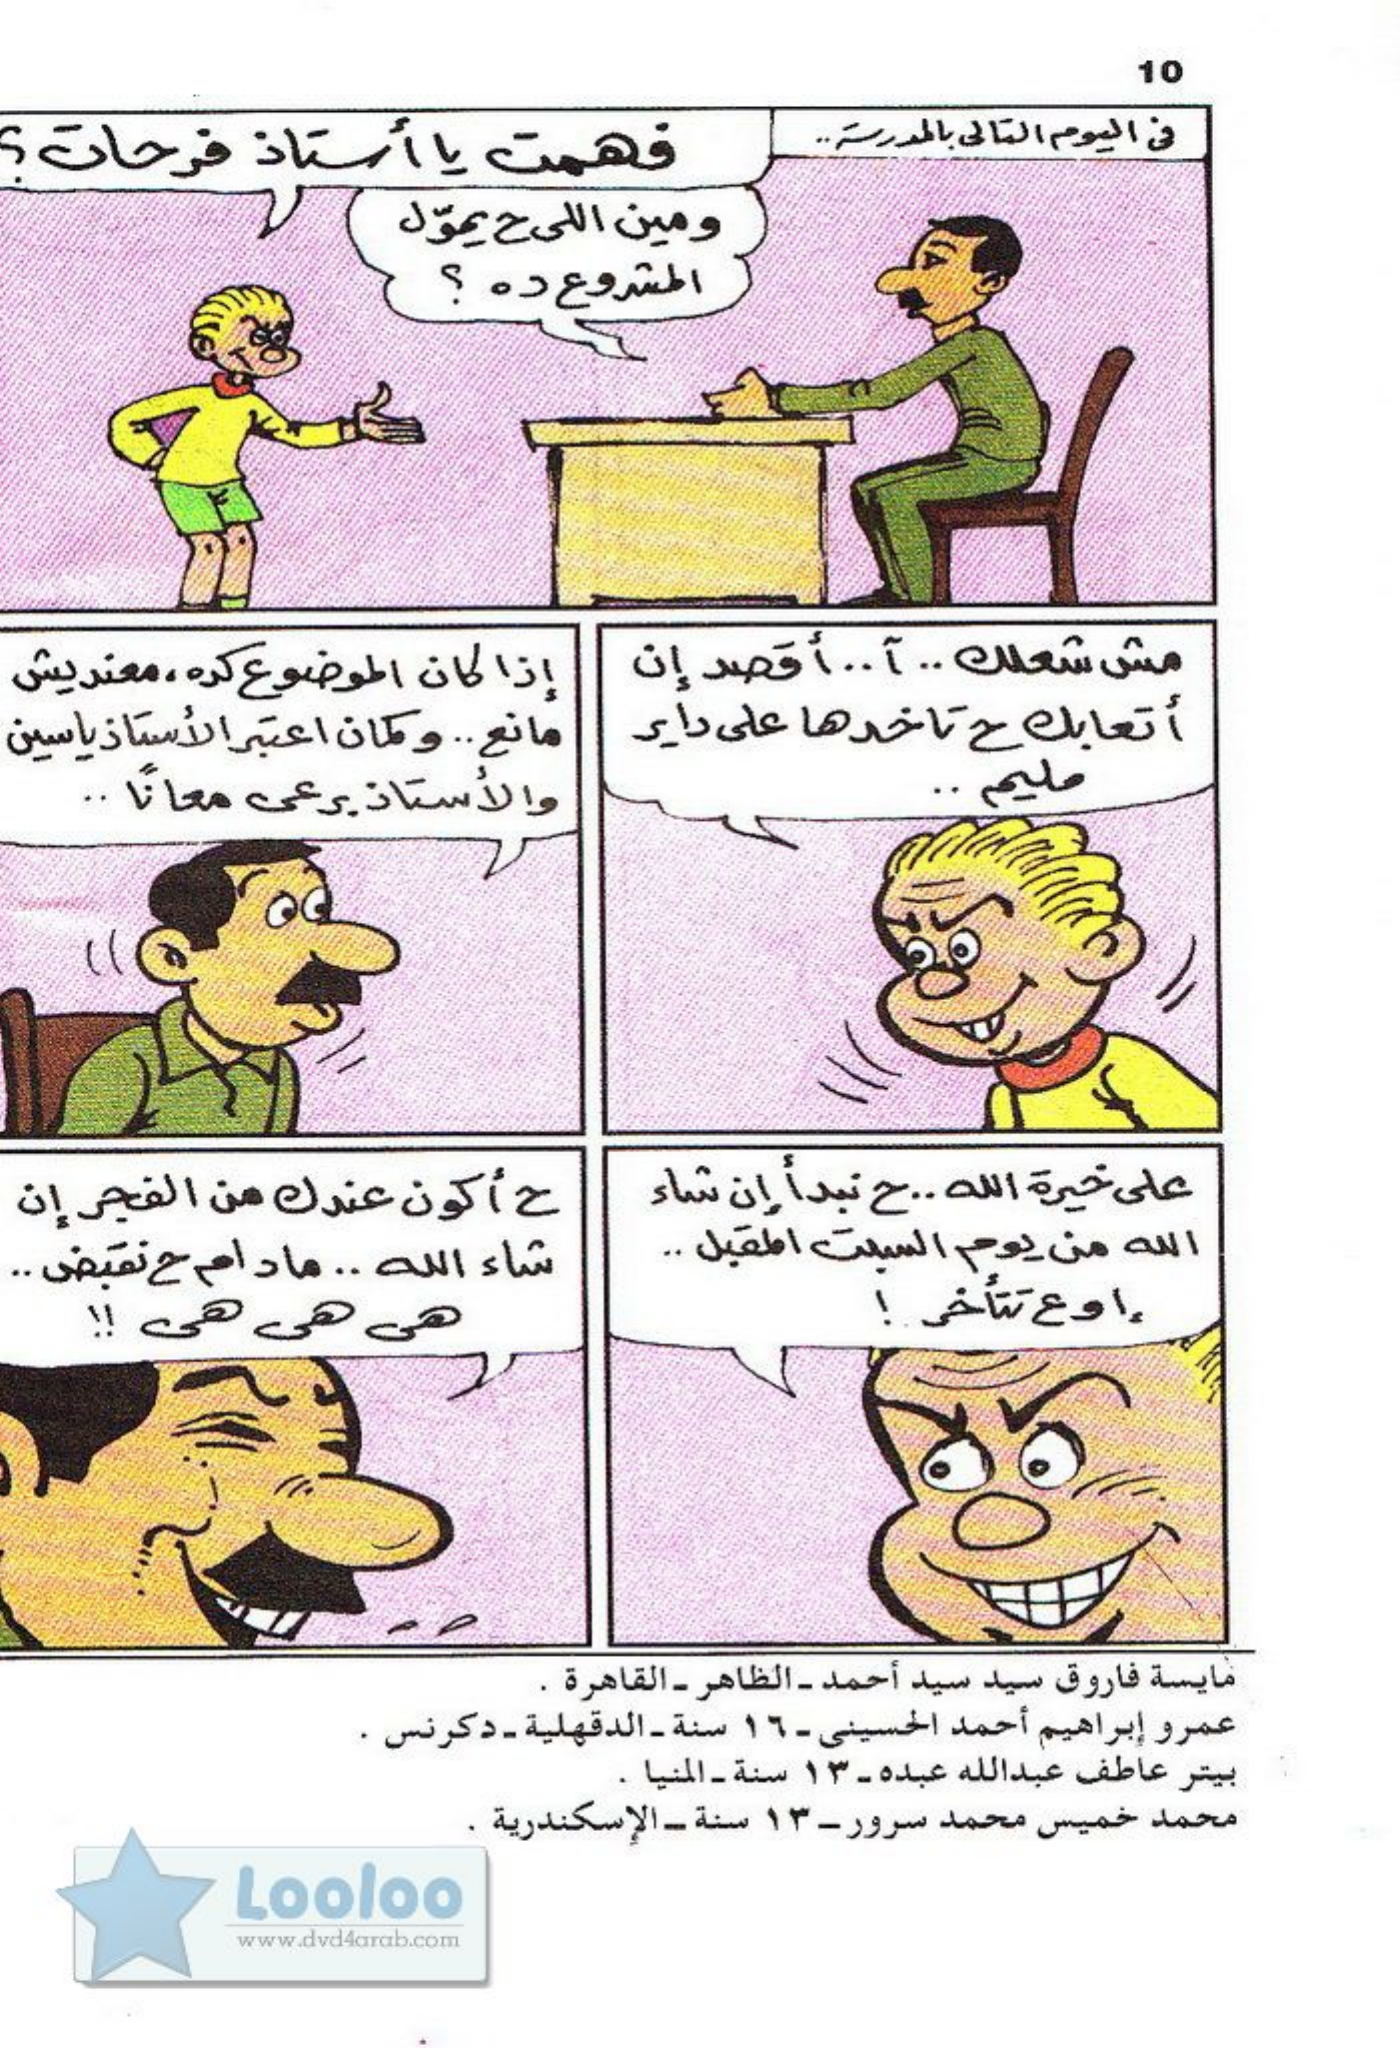 10
في اليوم التالي بالمدرسة..
فهمت يا أستاذ فرحات؟
ومين اللى ح يموّل
المشروع ده ؟
مش شغلك .. آ .. أقصد إن
أتعابك ح تاخدها على داير
مليم ..
إذا كان الموضوع كده، معنديش
مانع .. وكمان اعتبر الأستاذ ياسين
والأستاذ برعى معانًا ..
على خيرة الله .. ح نبدأ إن شاء
الله من يوم السبت المقبل ..
إوع تتأخر !
ح أكون عندك من الفجر إن
شاء الله .. مادام ح نقبض ..
هى هى هى !!
مايسة فاروق سيد سيد أحمد ـ الظاهر ـ القاهرة .
عمرو إبراهيم أحمد الحسينى ـ ١٦ سنة ـ الدقهلية ـ دكرنس .
بيتر عاطف عبدالله عبده ـ ١٣ سنة ـ المنيا .
محمد خميس محمد سرور ـ ١٣ سنة ـ الإسكندرية .
Looloo
www.dvd4arab.com